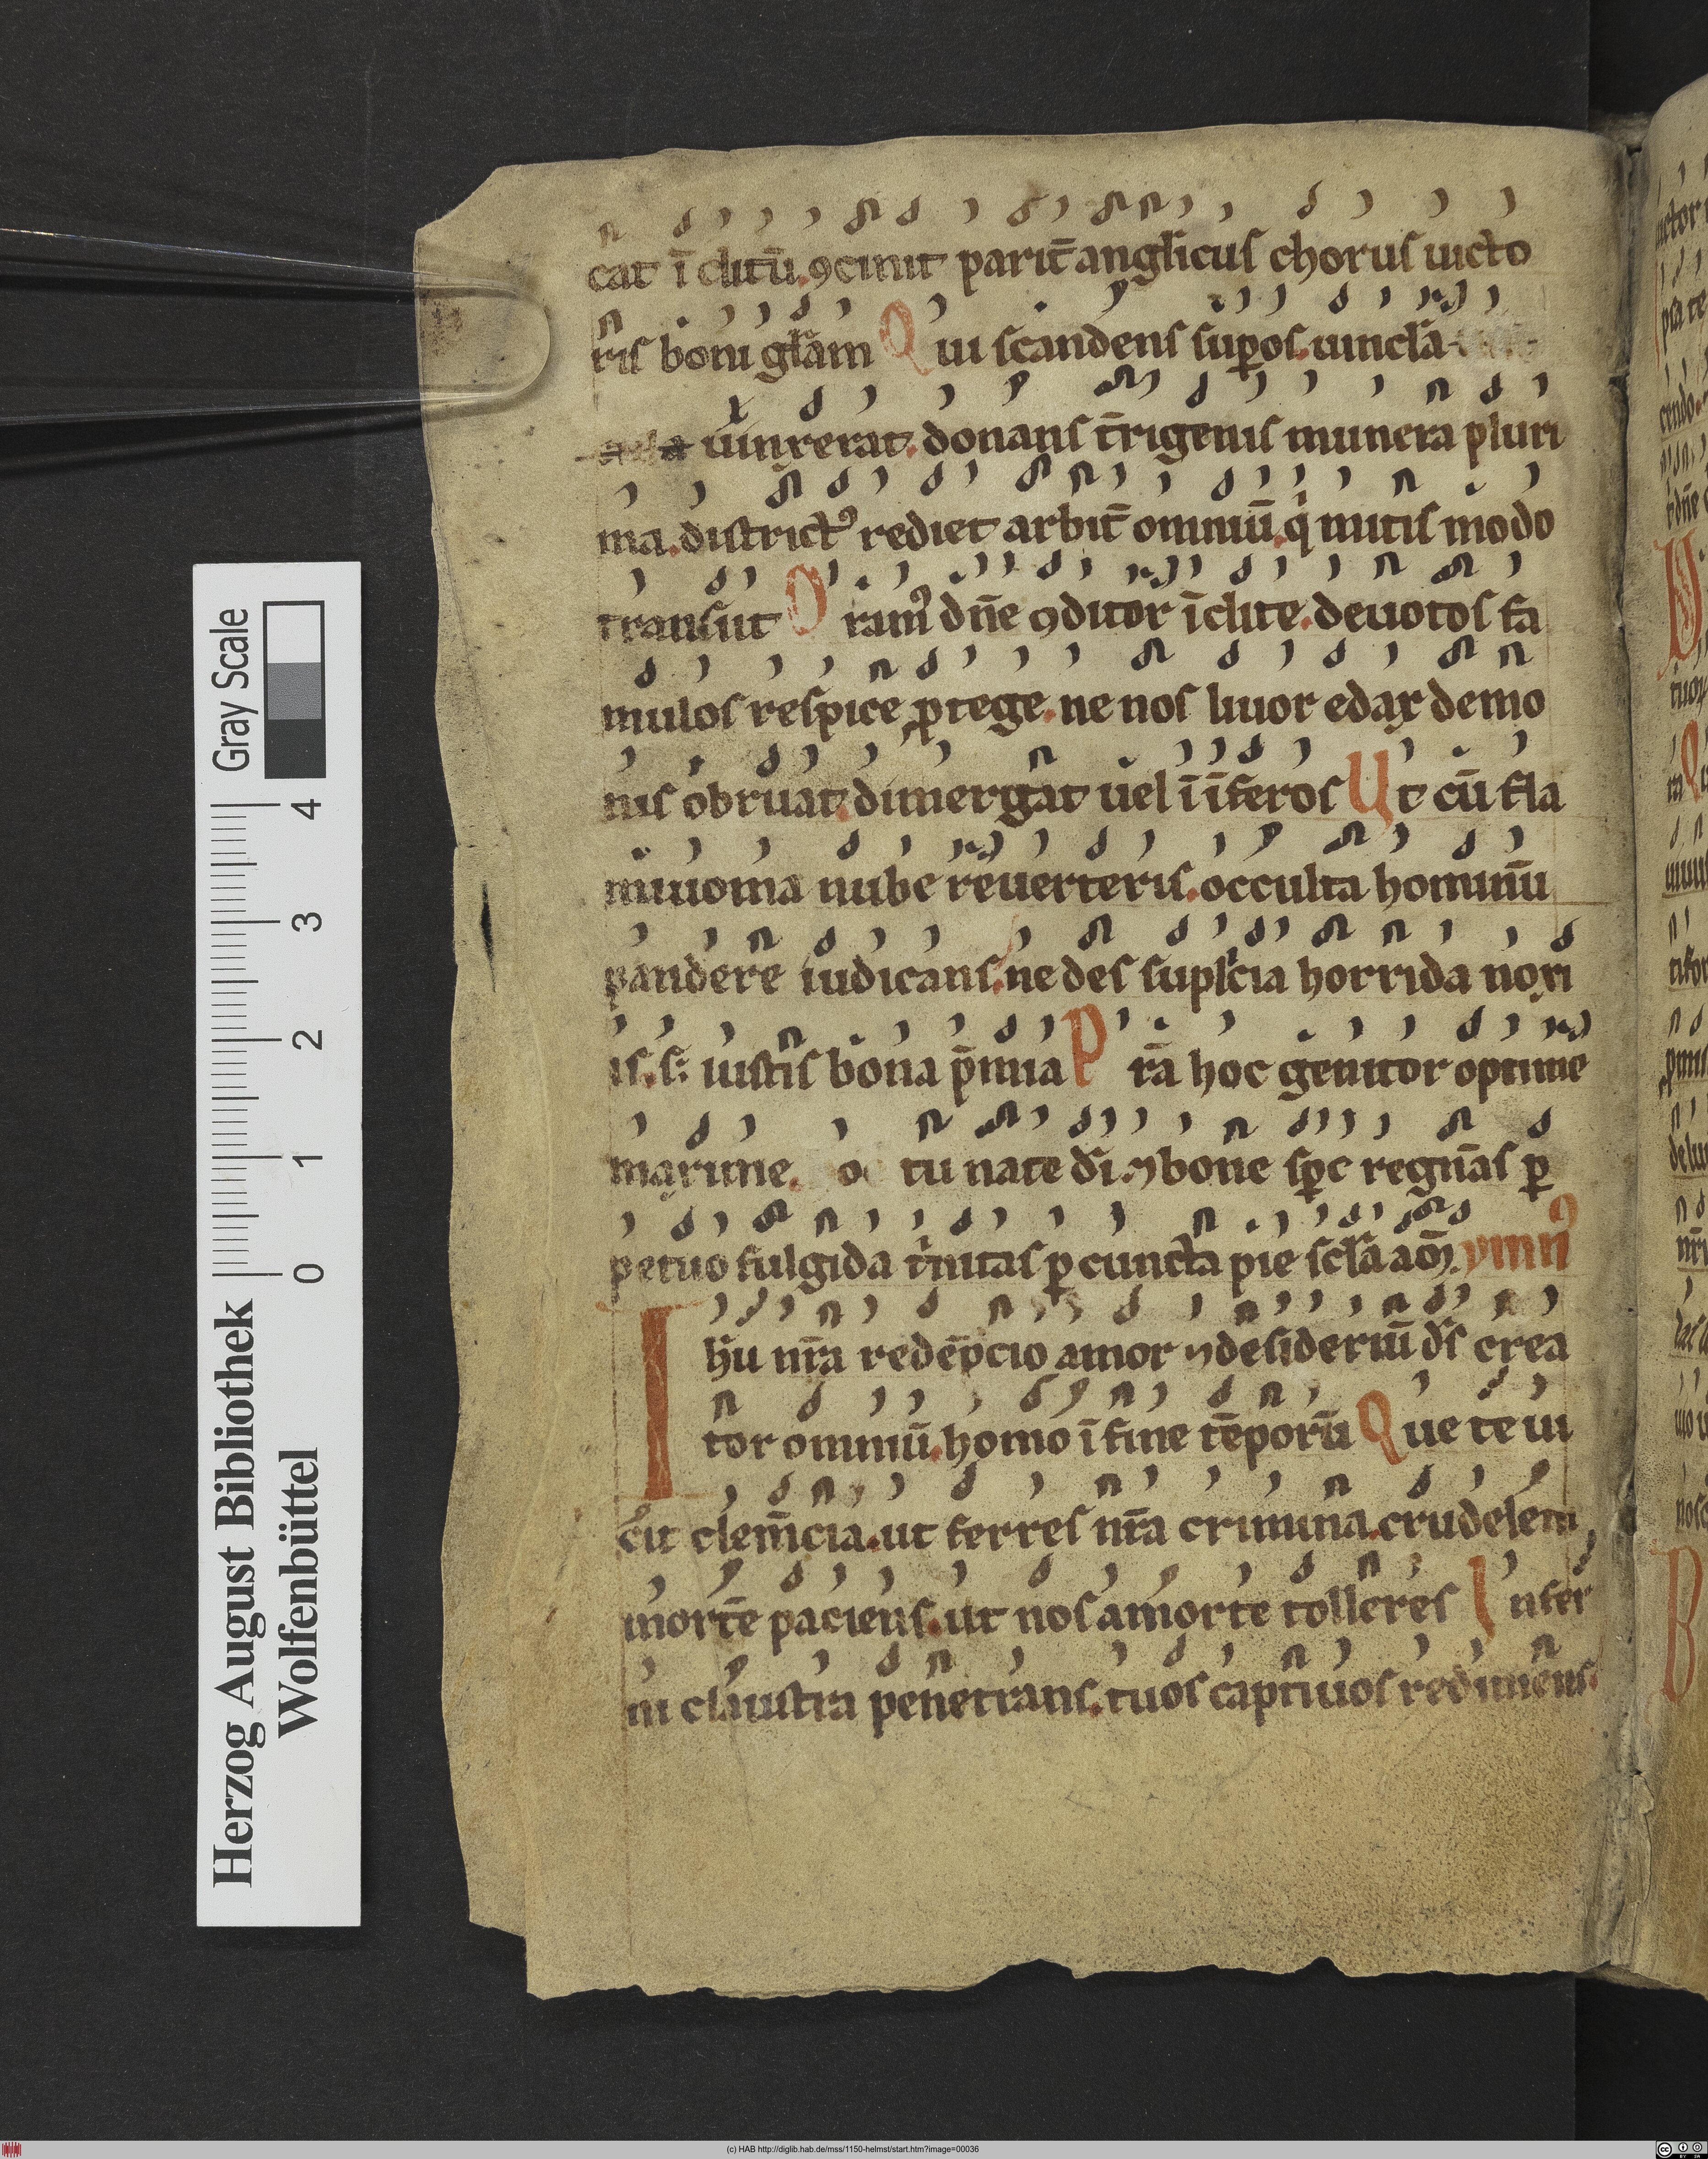 cat ī clitū.ꝯcinit parit̄ anglicus chorus uicto
ris boni głam Qui scandens suꝑos.uincła
uinxerat.donans t̄rigenis munera pluri
ma.district᷒ rediet arbit̄ omniū.qͥ mitis modo
transiit Oram᷒ dn̄e ꝯditor īclite.deuotos fa
mulos respice ꝓtege.ne nos liuor edax demo
nis obruat.dimergat uel ī īferos Ut cū fla
miuoma nube reuerteris.occulta hominū
pandere iudicans.ne des suplicia horrida noxi
is.s; iustis bona p̄mia Pr̄a hoc genitor optime
maxime. o tu nate dī.⁊ bone sꝑc regnās ꝑ
petuo fulgida tͥnitas ꝑ cuncta pie scła am̄. ymn᷒
Ihū nr̄a redēpcio amor ⁊ desideriū ds̄ crea
tor omniū.homo ī fine tēporū Que te ui
cit clem̄cia.ut ferres nr̄a crimina.crudelem
mortē paciens.ut nos a morte tolleres Infer
ni claustra penetrans.tuos captiuos redimens.
Herzog August Bibliothek
Wolfenbüttel
0 1 2 3 4
Gray Scale
(c) HAB http://diglib.hab.de/mss/1150-helmst/start.htm?image=00036